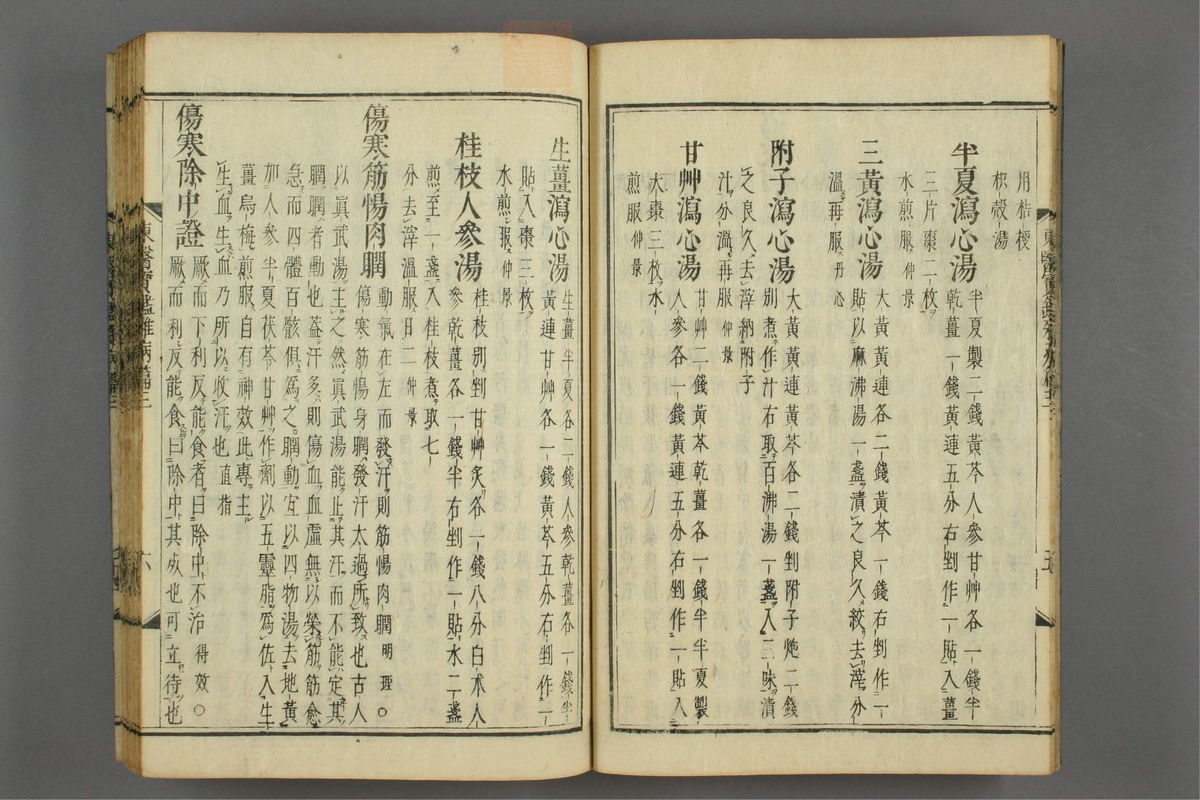 用桔梗
枳殼湯
半夏瀉心湯
半夏製二錢黃芩人參甘艸各一錢半
乾薑一錢黃連五分右剉作一貼入薑
三片棗二枚
水煎服仲景
三黃瀉心湯
大黃黃連各二錢黃芩一錢右剉作一
貼以麻沸湯一盞漬之良久絞去滓分
溫再服丹心
附子瀉心湯
大黃黃連黃芩各二錢剉附子炮二錢
別煮作汁右取百沸湯一盞入三味漬
之良久去滓納附子
汁分溫再服仲景
甘艸瀉心湯
甘艸二錢黃芩乾薑各一錢半半夏製
人參各一錢黃連五分右剉作一貼入
大棗三枚水
煎服仲景
生薑瀉心湯
生薑半夏各二錢人參乾薑各一錢半
黃連甘艸各一錢黃芩五分右剉作二
貼入棗三枚
水煎服仲景
桂枝人參湯
桂枝別剉甘艸炙各一錢八分白朮人
參乾薑各一錢半右剉作一貼水二盞
煎至一盞入桂枝煮取七
分去滓溫服日二仲景
傷寒筋惕肉瞤
動氣在左而發汗則筋惕肉瞤明理○
傷寒筋惕身瞤發汗太過所致也古人
以眞武湯主之然眞武湯能止其汗而不能定其
瞤瞤者動也蓋汗多則傷血血虛無以榮筋筋愈
急而四體百骸俱爲之瞤動宜以四物湯去地黃
加人參半夏茯苓甘艸作劑以五靈脂爲佐入生
薑烏梅煎服自有神效此專主
生血生血乃所以收汗也直指
傷寒除中證
厥而下利反能食者曰除中不治得效○
厥而利反能食曰除中其死也可立待也
東醫寶鑑雜病篇三
六